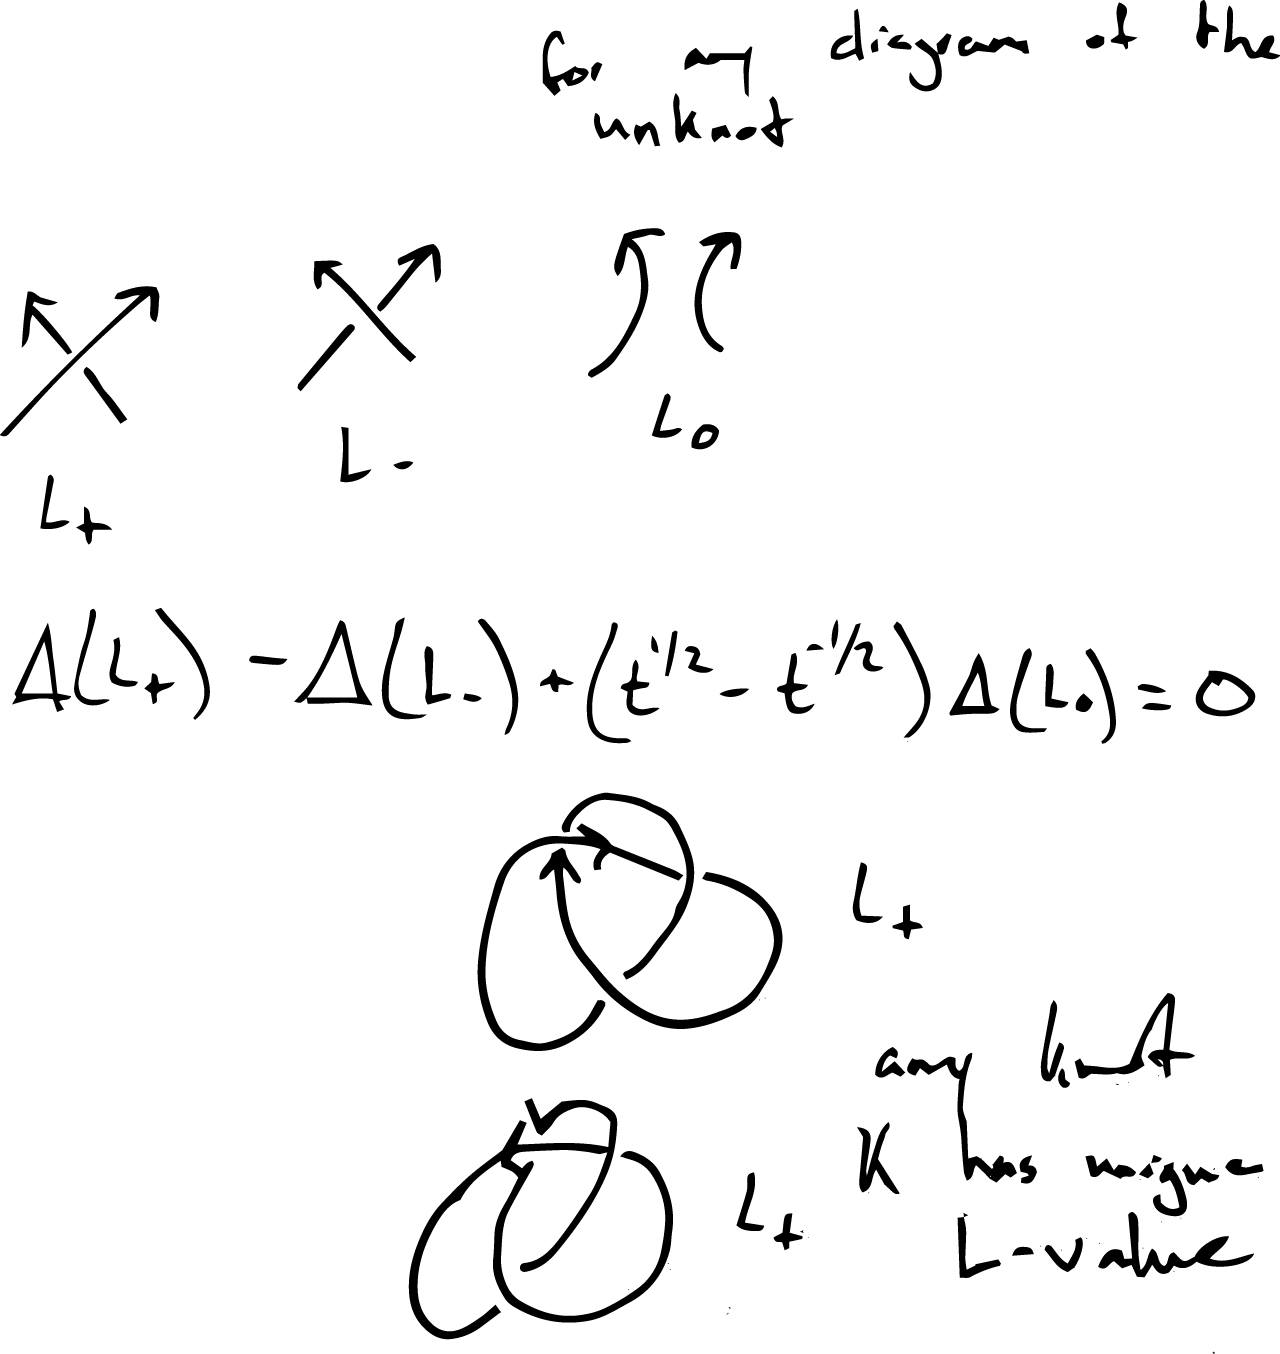 for any diagram of the
unknot
L₊ L₋ L₀
Δ(L₊) - Δ(L₋) + (t^{1/2} - t^{-1/2}) Δ(L₀) = 0
L₊
any knot
K has unique
L₊
L-value